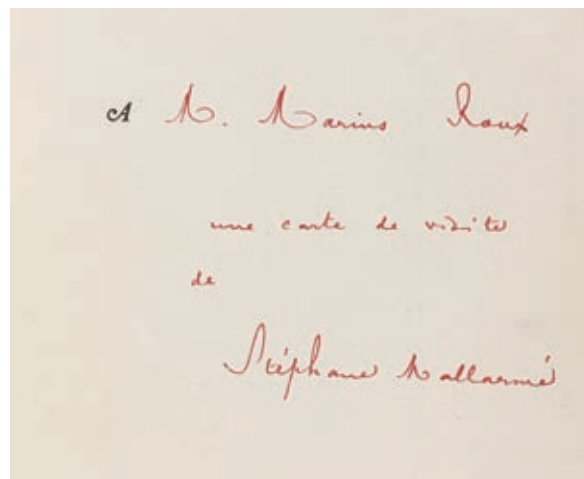 A M. Marius Roux
une carte de visite
de
Stéphane Mallarmé